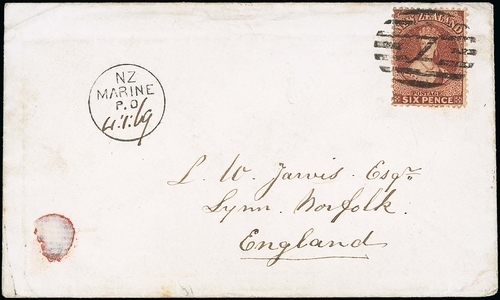 NEW ZEALAND
POSTAGE
SIX PENCE
NZ
MARINE
P.O
4.1.69
L. W. Jarvis Esqr.
Lynn. Norfolk.
England